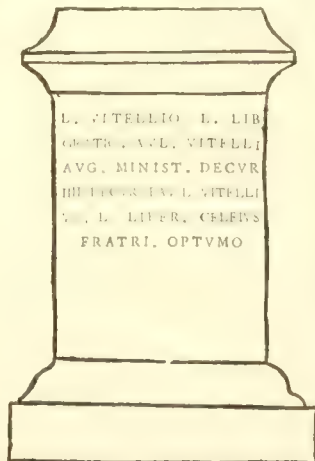 L. VITELLIO L. LIB
VITELLI
AVG. MINIST. DECVR
L. VITELLI
L. LIBER. CELEIVS
FRATRI. OPTVMO